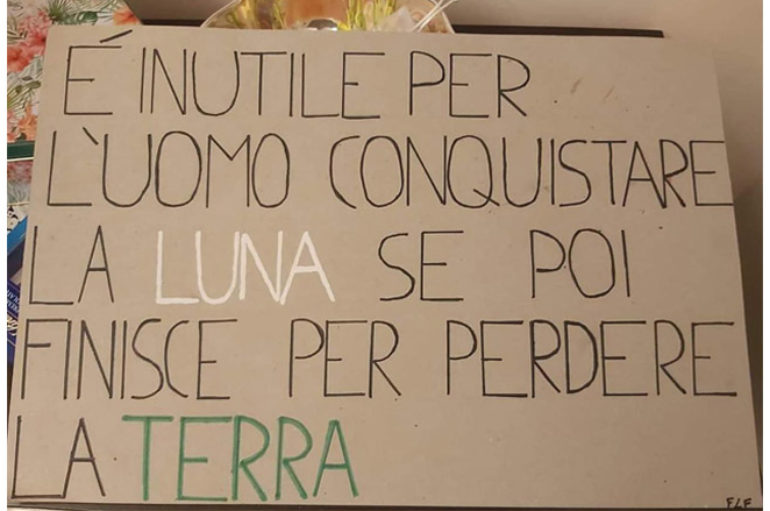 É INUTILE PER
L'UOMO CONQUISTARE
LA LUNA SE POI
FINISCE PER PERDERE
LA TERRA
FLF